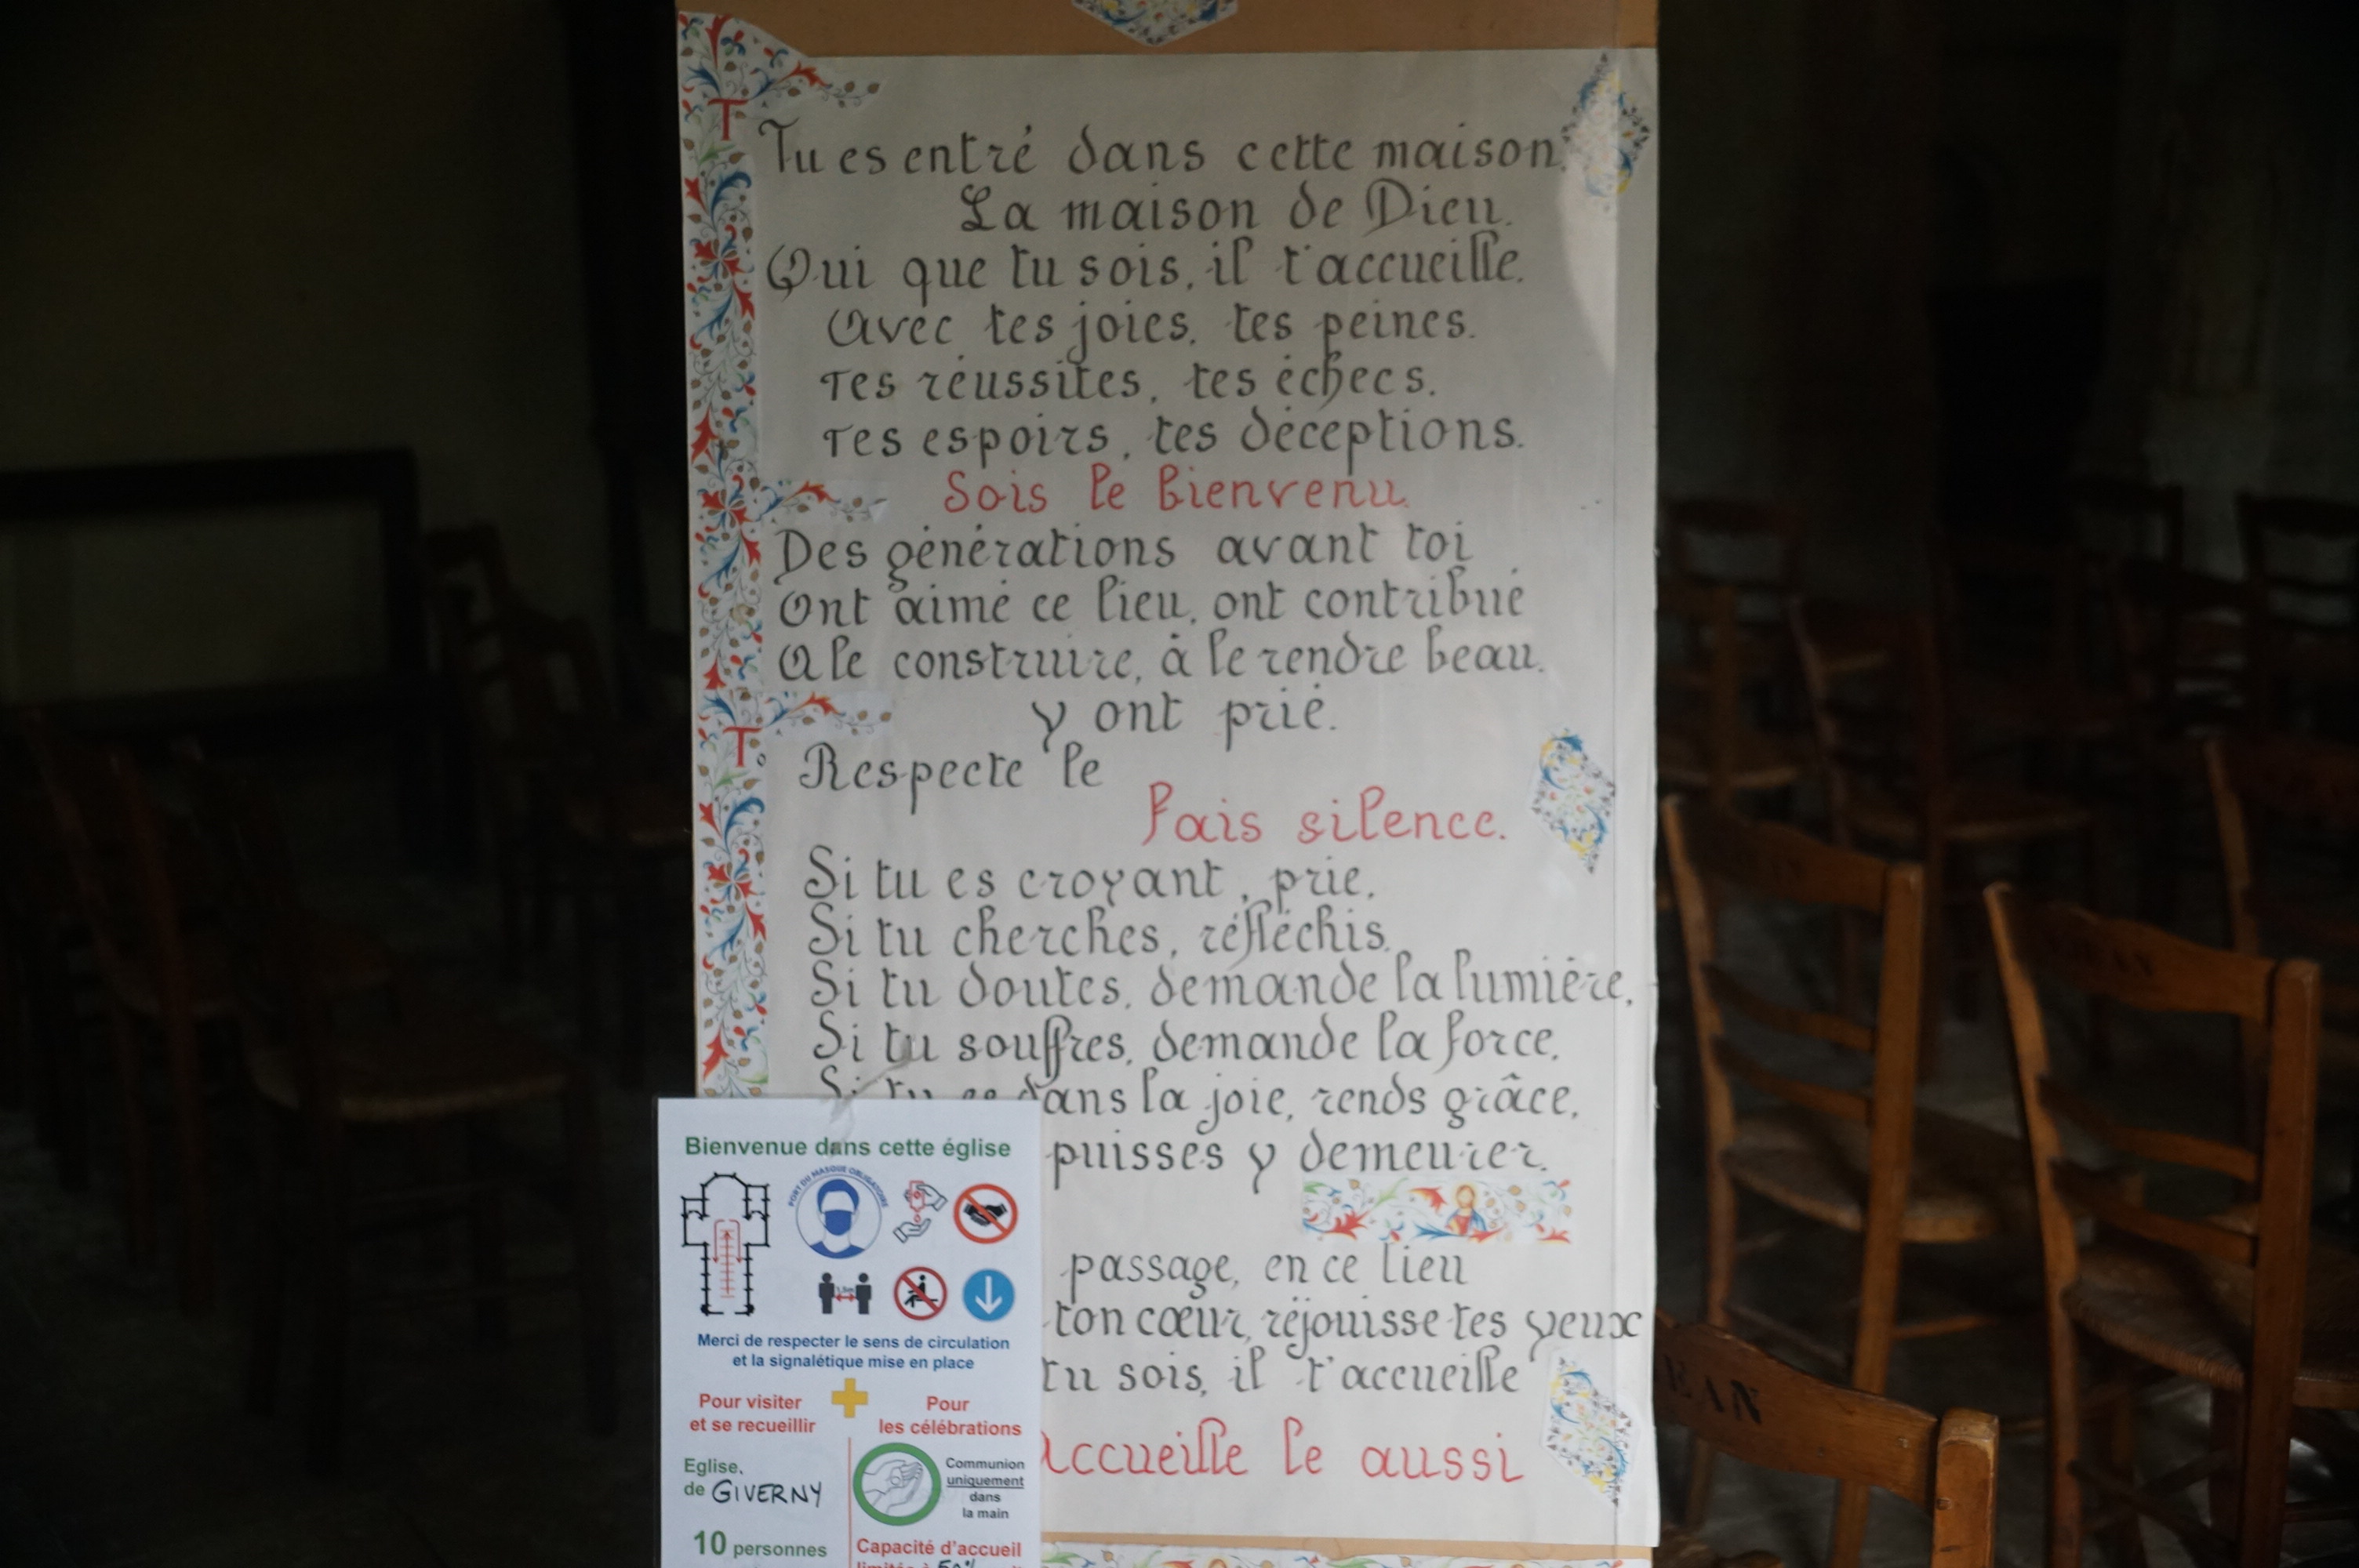 T
Tu es entré dans cette maison.
La maison de Dieu.
Qui que tu sois, il t'accueille.
Avec tes joies, tes peines.
Tes réussites, tes échecs.
Tes espoirs, tes déceptions.
Sois le Bienvenu.
Des générations avant toi
Ont aimé ce lieu, ont contribué
A le construire, à le rendre beau.
y ont prié.
T
Respecte le
Fais silence.
Si tu es croyant, prie.
Si tu cherches, réfléchis.
Si tu doutes, demande la lumière,
Si tu souffres, demande la force.
Si tu es dans la joie, rends grâce,
puisses y demeurer.
passage, en ce lieu
ton cœur, réjouisse tes yeux
tu sois, il t'accueille
Accueille le aussi
Bienvenue dans cette église
PORT DU MASQUE OBLIGATOIRE
Merci de respecter le sens de circulation
et la signalétique mise en place
Pour visiter
et se recueillir
Eglise.
de GIVERNY
10 personnes
Pour
les célébrations
Communion
uniquement
dans
la main
Capacité d'accueil
EAN